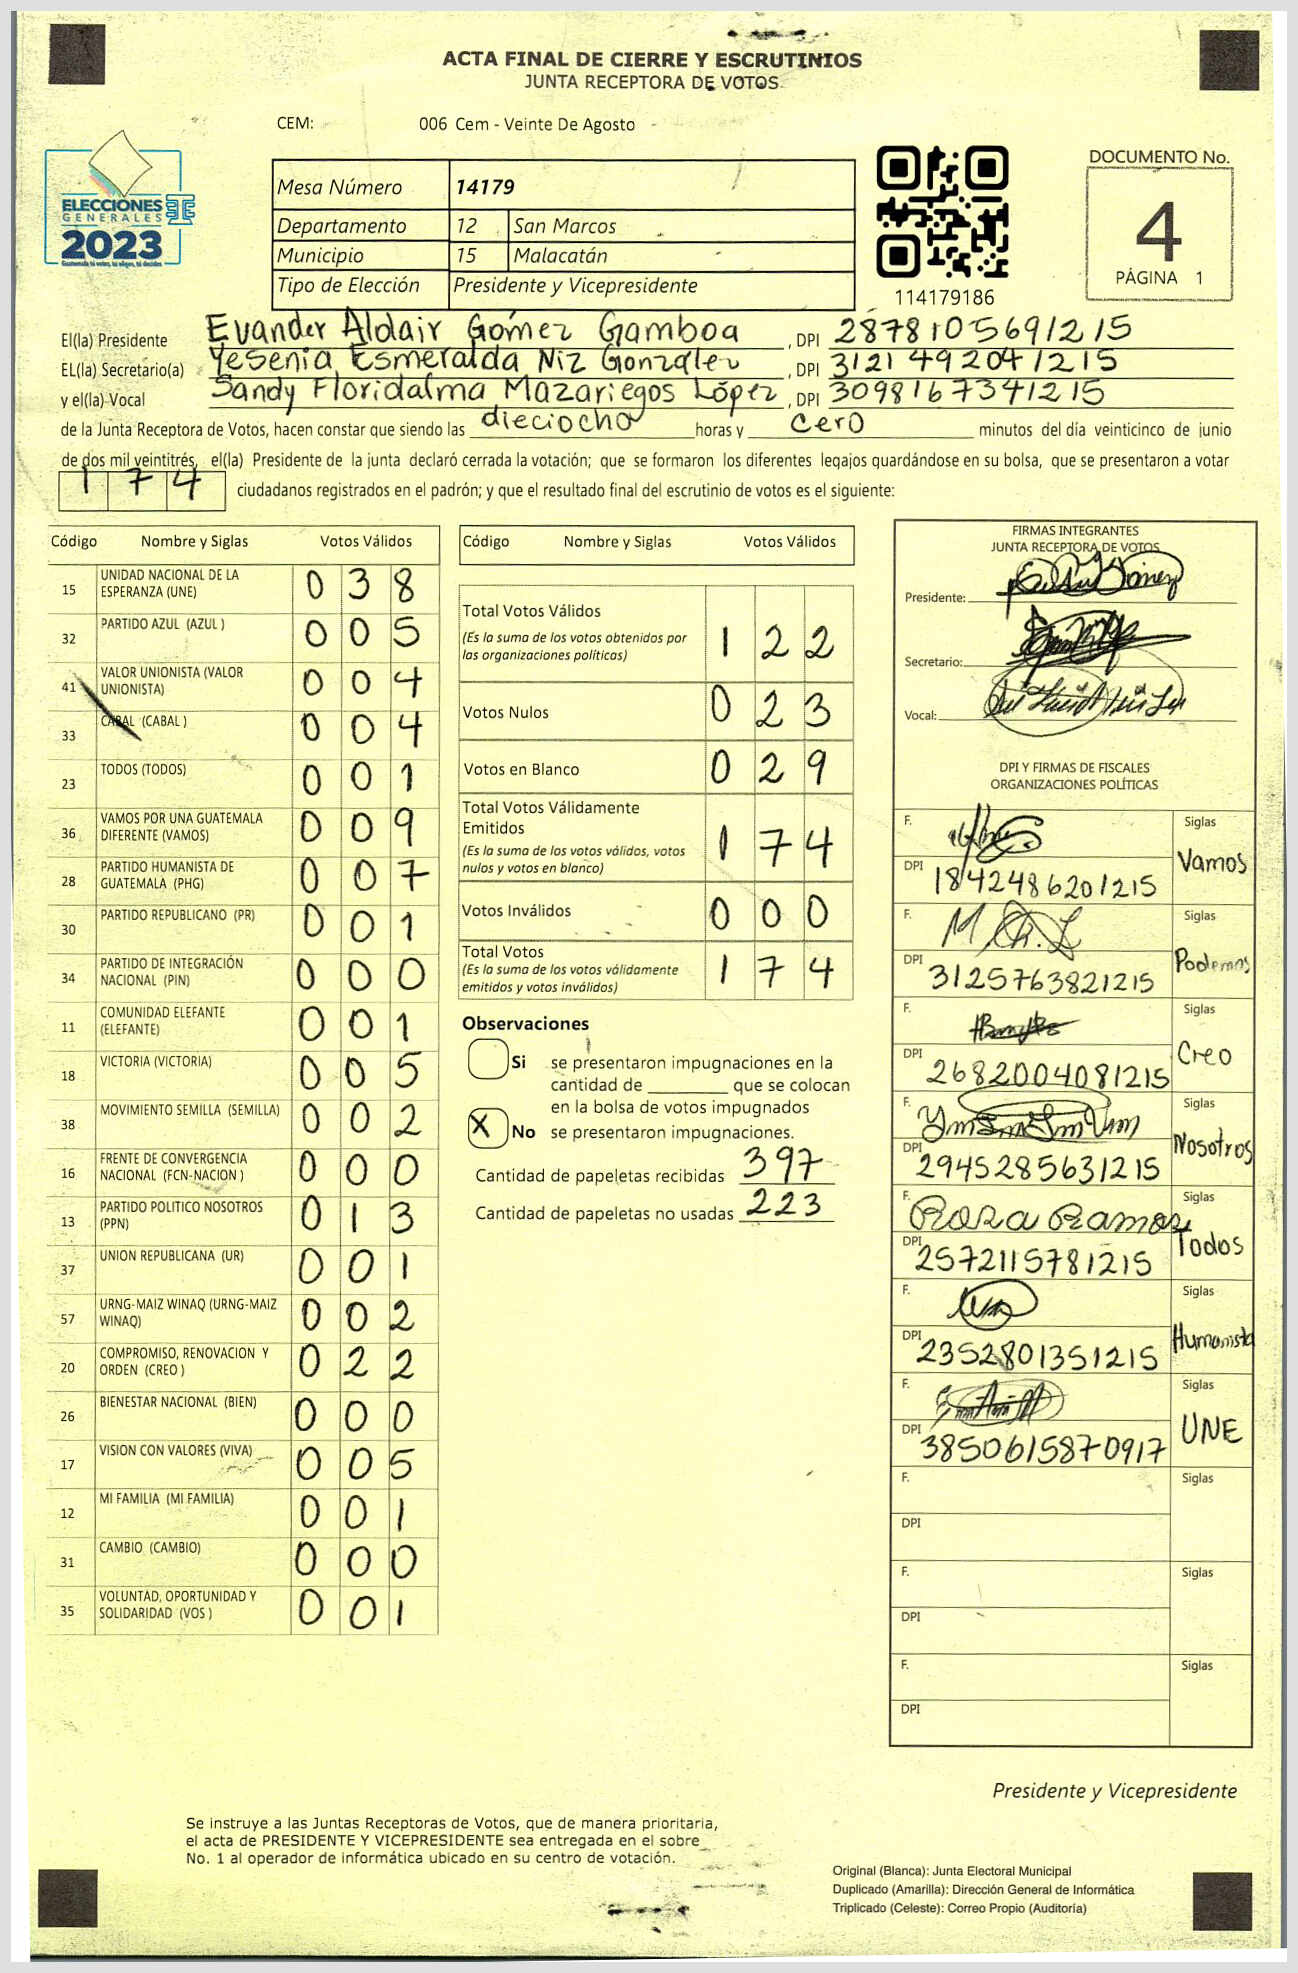 ACTA FINAL DE CIERRE Y ESCRUTINIOS
JUNTA RECEPTORA DE VOTOS
CEM: 006 Cem - Veinte De Agosto
ELECCIONES
GENERALES
2023
Guatemala tú votas, tú eliges, tú decides
Mesa Número 14179
Departamento 12 San Marcos
Municipio 15 Malacatán
Tipo de Elección Presidente y Vicepresidente
114179186
DOCUMENTO No.
4
PÁGINA 1
El(la) Presidente Evander Aldair Gómez Gamboa , DPI 2878105691215
EL(la) Secretario(a) Yesenia Esmeralda Niz González , DPI 3121492041215
y el(la) Vocal Sandy Floridalma Mazariegos López , DPI 3098167341215
de la Junta Receptora de Votos, hacen constar que siendo las dieciocho horas y cero minutos del día veinticinco de junio
de dos mil veintitrés, el(la) Presidente de la junta declaró cerrada la votación; que se formaron los diferentes legajos guardándose en su bolsa, que se presentaron a votar
174 ciudadanos registrados en el padrón; y que el resultado final del escrutinio de votos es el siguiente:
Código Nombre y Siglas Votos Válidos
15 UNIDAD NACIONAL DE LA ESPERANZA (UNE) 038
32 PARTIDO AZUL (AZUL ) 005
41 VALOR UNIONISTA (VALOR UNIONISTA) 004
33 CABAL (CABAL ) 004
23 TODOS (TODOS) 001
36 VAMOS POR UNA GUATEMALA DIFERENTE (VAMOS) 009
28 PARTIDO HUMANISTA DE GUATEMALA (PHG) 007
30 PARTIDO REPUBLICANO (PR) 001
34 PARTIDO DE INTEGRACIÓN NACIONAL (PIN) 000
11 COMUNIDAD ELEFANTE (ELEFANTE) 001
18 VICTORIA (VICTORIA) 005
38 MOVIMIENTO SEMILLA (SEMILLA) 002
16 FRENTE DE CONVERGENCIA NACIONAL (FCN-NACION ) 000
13 PARTIDO POLITICO NOSOTROS (PPN) 013
37 UNION REPUBLICANA (UR) 001
57 URNG-MAIZ WINAQ (URNG-MAIZ WINAQ) 002
20 COMPROMISO, RENOVACION Y ORDEN (CREO ) 022
26 BIENESTAR NACIONAL (BIEN) 000
17 VISION CON VALORES (VIVA) 005
12 MI FAMILIA (MI FAMILIA) 001
31 CAMBIO (CAMBIO) 000
35 VOLUNTAD, OPORTUNIDAD Y SOLIDARIDAD (VOS ) 001
Código Nombre y Siglas Votos Válidos
Total Votos Válidos 122
(Es la suma de los votos obtenidos por
las organizaciones políticas)
Votos Nulos 023
Votos en Blanco 029
Total Votos Válidamente
Emitidos 174
(Es la suma de los votos válidos, votos
nulos y votos en blanco)
Votos Inválidos 000
Total Votos 174
(Es la suma de los votos válidamente
emitidos y votos inválidos)
Observaciones
Si se presentaron impugnaciones en la
cantidad de ________ que se colocan
en la bolsa de votos impugnados
X No se presentaron impugnaciones.
Cantidad de papeletas recibidas 397
Cantidad de papeletas no usadas 223
FIRMAS INTEGRANTES
JUNTA RECEPTORA DE VOTOS
Presidente:
Secretario:
Vocal:
DPI Y FIRMAS DE FISCALES
ORGANIZACIONES POLÍTICAS
F. Siglas
DPI 1842486201215 Vamos
F. Siglas
DPI 3125763821215 Podemos
F. Siglas
DPI 2682004081215 Creo
F. Siglas
DPI 2945285631215 Nosotros
F. Rosa Ramos Siglas
DPI 2572115781215 Todos
F. Siglas
DPI 2352801351215 Humanista
F. Siglas
DPI 3850615870917 UNE
F. Siglas
DPI
F. Siglas
DPI
F. Siglas
DPI
Presidente y Vicepresidente
Se instruye a las Juntas Receptoras de Votos, que de manera prioritaria,
el acta de PRESIDENTE Y VICEPRESIDENTE sea entregada en el sobre
No. 1 al operador de informática ubicado en su centro de votación.
Original (Blanca): Junta Electoral Municipal
Duplicado (Amarilla): Dirección General de Informática
Triplicado (Celeste): Correo Propio (Auditoría)